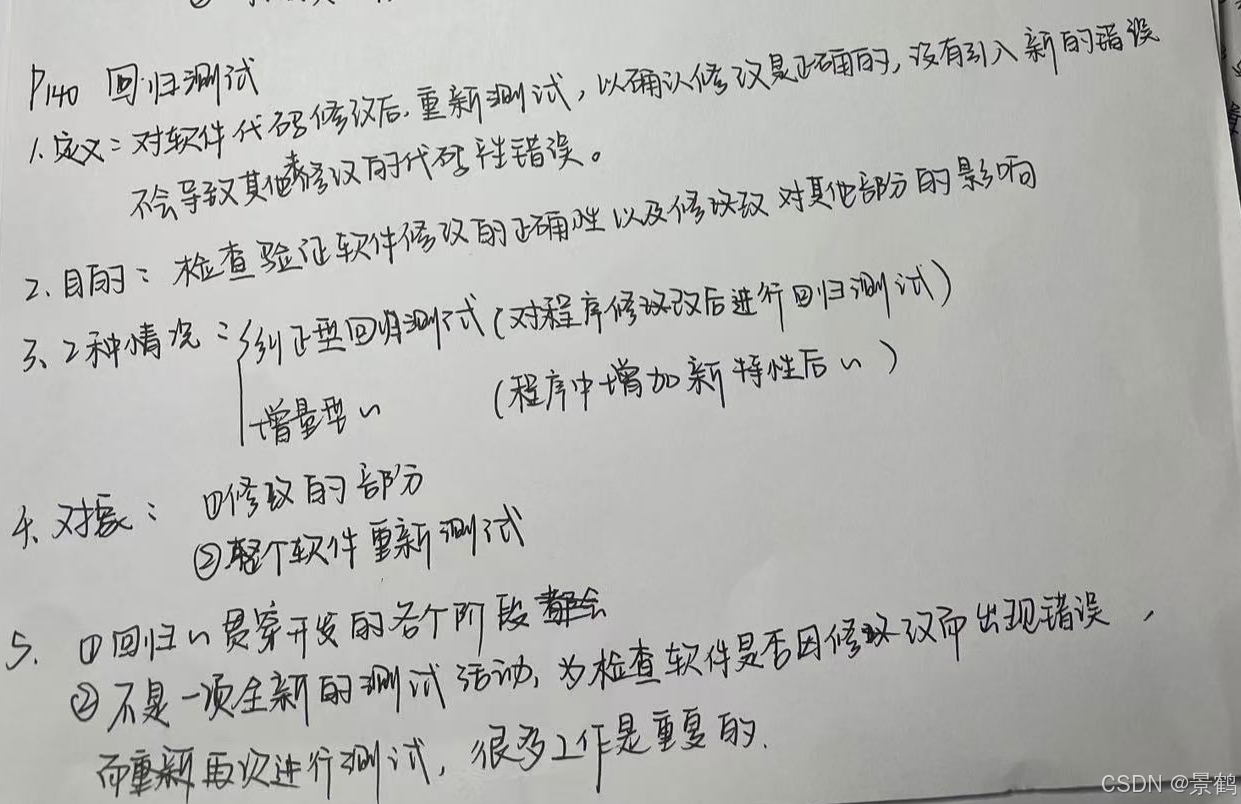 P140 回归测试
1. 定义：对软件代码修改后，重新测试，以确认修改是正确的，没有引入新的错误
不会导致其他未修改的代码产生错误。
2. 目的：检查验证软件修改的正确性以及修改对其他部分的影响
3. 2种情况：纠正型回归测试（对程序修改后进行回归测试）
增量型〃 （程序中增加新特性后〃）
4. 对象：①修改的部分
②整个软件重新测试
5. ①回归〃贯穿开发的各个阶段
②不是一项全新的测试活动，为检查软件是否因修改而出现错误，
而重新再次进行测试，很多工作是重复的.
CSDN @景鹤